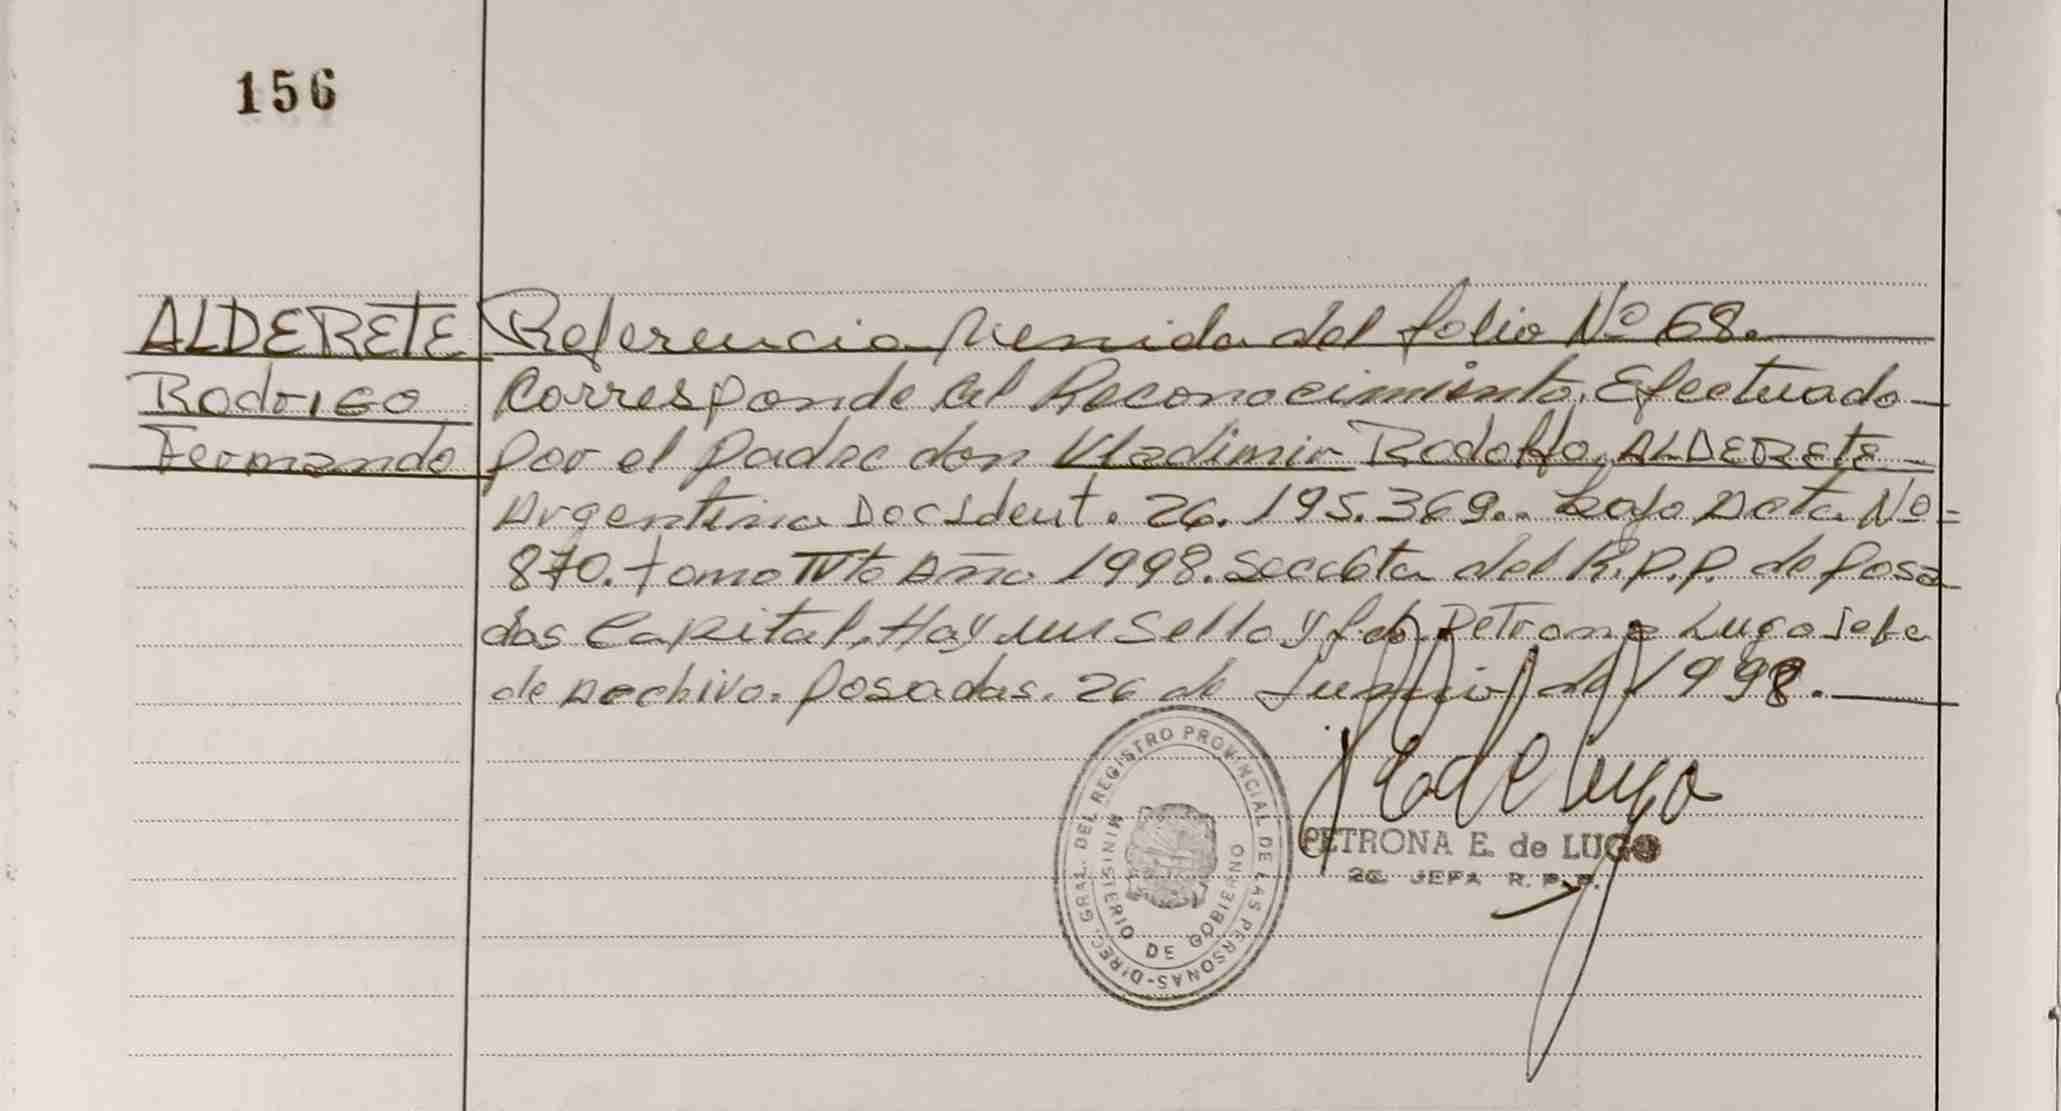 156
ALDERETE
Rodrigo
Fernando
Referencia Venida del folio Nº 68.
Corresponde al Reconocimiento. Efectuado
por el padre don Vladimir Rodolfo ALDERETE
Argentino Doc Ident. 26.195.369.. bajo Acta Nº
870. tomo IVto Año 1998. Secc 6ta del R.P.P. de Posa
das Capital. Hay un Sello y fdo. Petrona Lugo Jefe
de Archivo. Posadas. 26 de Junio de 1998.
DIREC. GRAL. DEL REGISTRO PROVINCIAL DE LAS PERSONAS
MINISTERIO DE GOBIERNO
PETRONA E. de LUGO
JEFA R. P. P.